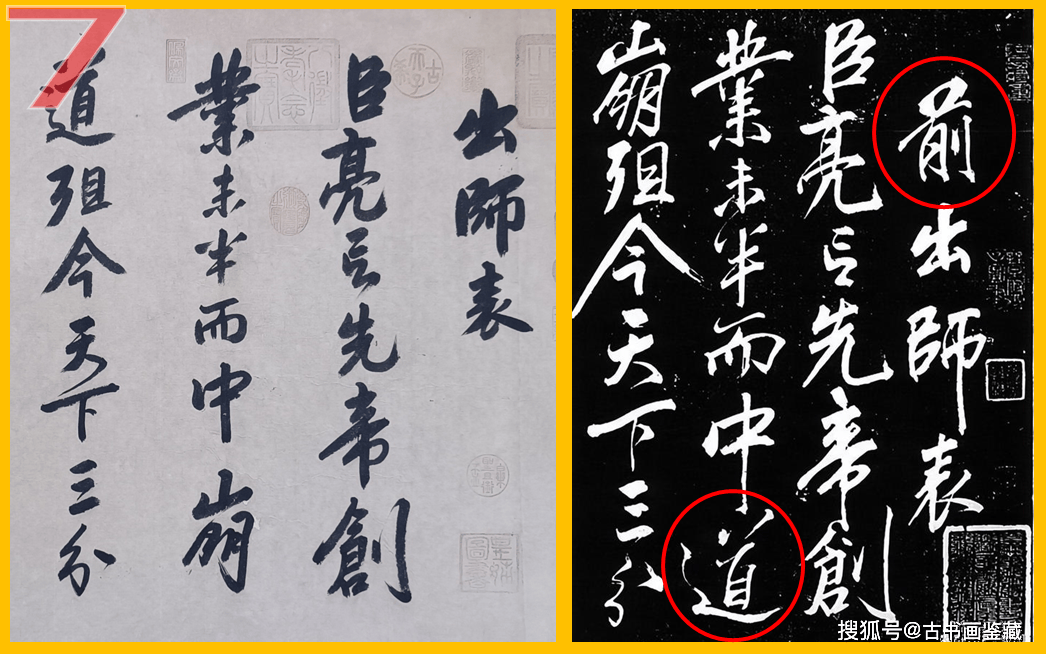 7
出師表
臣亮言先帝創
業未半而中崩
道殂今天下三分
前出師表
臣亮言先帝創
業未半而中道
崩殂今天下三分
搜狐号@古书画鉴藏